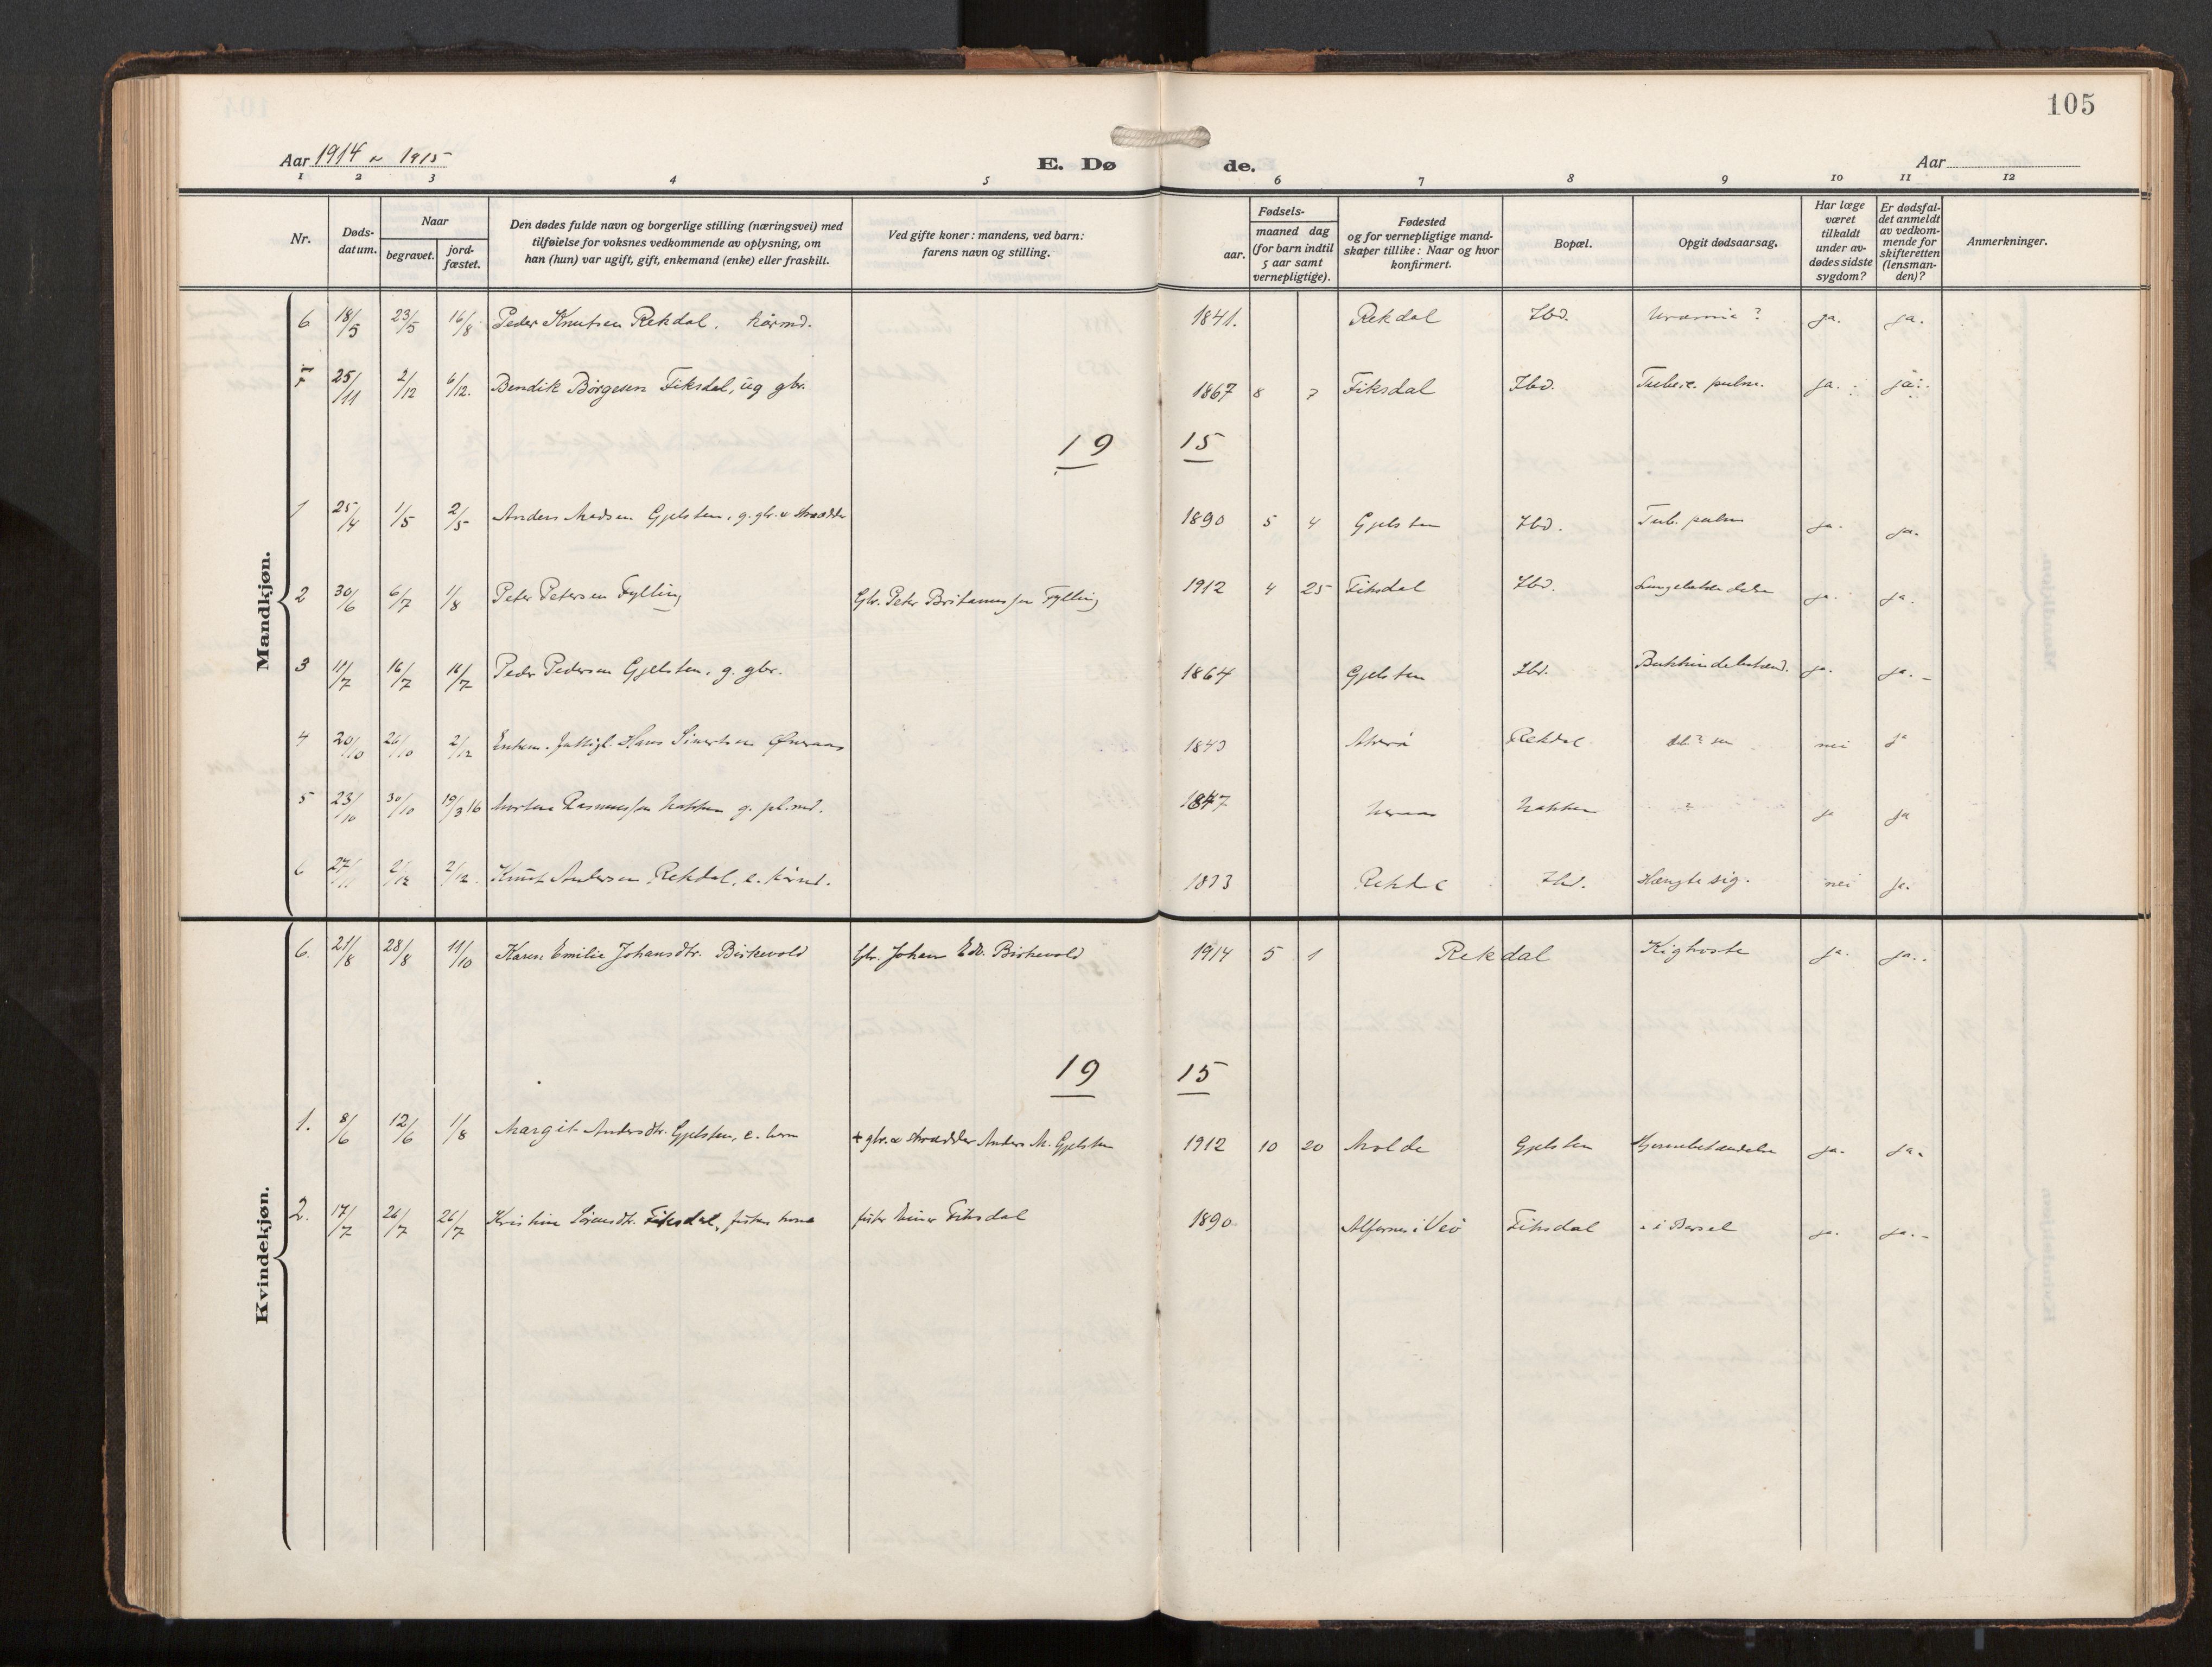 105
Aar 1914 ~ 1915 E. Dø de. Aar
1 2 3 4 5 6 7 8 9 10 11 12
Nr.
Døds-
datum.
Naar
begravet.
jord-
fæstet.
Den dødes fulde navn og borgerlige stilling (næringsvei) med
tilføielse for voksnes vedkommende av oplysning, om
han (hun) var ugift, gift, enkemand (enke) eller fraskilt.
Ved gifte koner: mandens, ved barn:
farens navn og stilling.
Fødsels-
aar.
maaned dag
(for barn indtil
5 aar samt
vernepligtige).
Fødested
og for vernepligtige mand-
skaper tillike: Naar og hvor
konfirmert.
Bopæl.
Opgit dødsaarsag.
Har læge
været
tilkaldt
under av-
dødes sidste
sygdom?
Er dødsfal-
det anmeldt
av vedkom-
mende for
skifteretten
(lensman-
den)?
Anmerkninger.
Mandkjøn.
6 18/5 23/5 16/8 Peder Knutsen Rekdal, kårmd. 1841. Rekdal Ibd. Uræmie? ja. ja.
7 25/11 2/12 6/12. Bendik Börgesen Fiksdal, ug gbr. 1867 8 7 Fiksdal Ibd. Tuberc. pulm. ja. ja.
19 15
1 25/4 1/5 2/5 Anders Madsen Gjelsten, g. gbr. & skrædder 1890 5 4 Gjelsten Ibd. Tub. pulm ja. ja.
2 30/6 6/7 1/8 Peter Petersen Fylling Gbr. Peter Fylling 1912 4 25 Fiksdal Ibd. ja. ja.
3 11/7 16/7 16/7 Peder Pedersen Gjelsten, g. gbr. 1864 Gjelsten Ibd. ja. ja.
4 20/10 26/10 2/12 Hans 1843 Rekdal nei ja
5 23/10 30/10 19/3 16 Rasmussen g. 1847 ja ja
6 27/11 2/12 2/12. Knut Andersen Rekdal, e. kårmd. Rekdal Ibd. Hængte sig. nei ja.
Kvindekjøn.
6. 21/8 28/8 11/10 Karen Emilie Johansdtr. Birkevold Gbr. Johan Edv. Birkevold 1914 5 1 Rekdal Kighoste ja. ja.
19 15
1. 8/6 12/6 1/8 Margit Andersdtr. Gjelsten, e. barn + gbr. & skrædder Anders M. Gjelsten 1912 10 20 Molde Gjelsten Hjernebetændelse ja. ja.
2. 17/7 26/7 26/7 Kristine Fiksdal, kone Fiksdal 1890 i Veö Fiksdal i Barsel ja. ja.